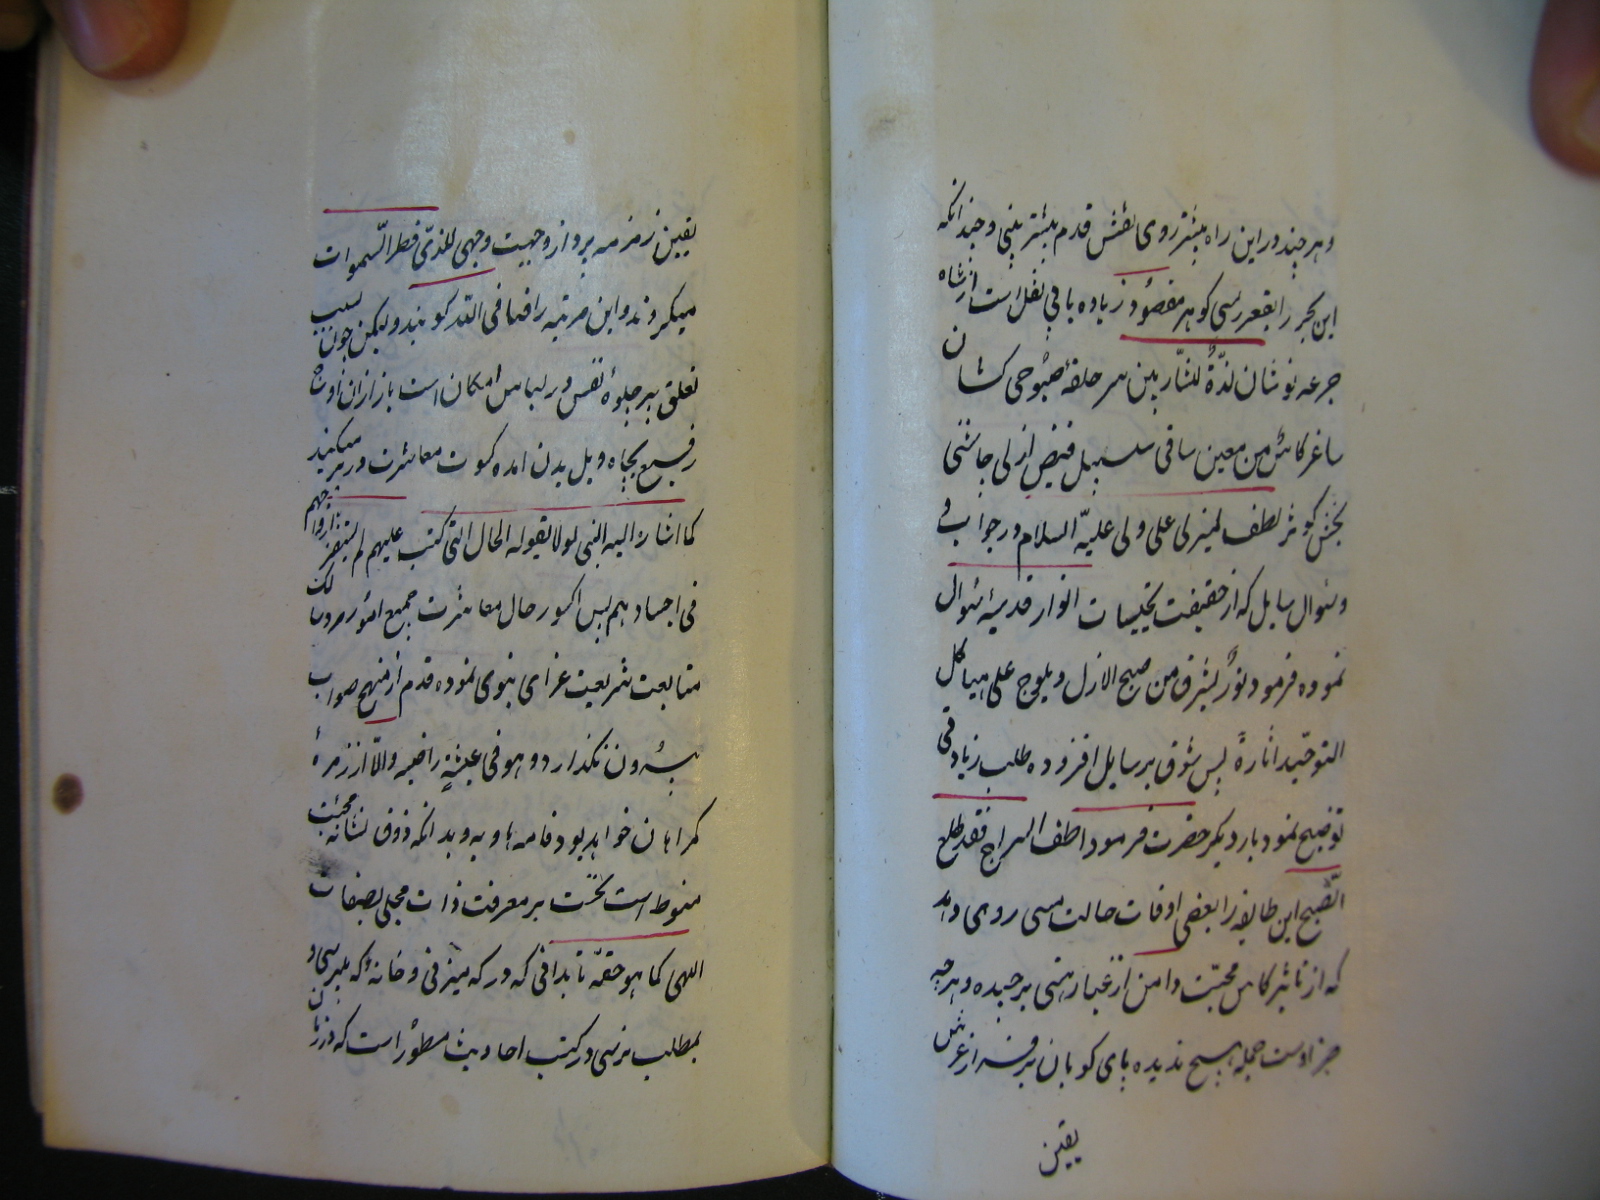 و هر چند در این راه بیشتر روی نقش قدم بیشتر بینی و چندانکه
این بحر را بقعر رسی کوهر مقصود زیاده یابی نقل است از شاه
جرعه نوشان لذّةٌ للشّاربین سر حلقهٔ صبوحی کشان
ساغر کاس من معین ساقی سلسبیل فیض ازلی چاشنی
بخش کوثر لطف لمیزلی علی ولی علیه السلام در جواب و
و سٔوال سایل که از حقیقت تجلیات انوار قدسیه سٔوال
نموده فرمود نورٌ یشرق من صبح الازل و یلوح علی هیاکل
التوحید اثارهٔ پس شوق بر سایل افزوده طلب زیادتی
توضیح نمود بار دیکر حضرت فرمود اطف السراج فقد طلع
الصّبح این طایفه را بعضی اوقات حالت مسی روی دهد
که از تاثیر کاس محبّت دامن از غبار هستی برچیده و هر چه
جز اوست جمله هیچ ندیده پای کوبان بر فراز عرش
یقین
یقین زمزمه پرداز وجهت وجهی للذی فطر السّموات
میکردند و این مرتبه را فنا فی الله کویند و لیکن چون بسبب
تعلق بر جلوهٔ نفس در لباس امکان است باز ازان اوج
رفیع بچاه ویل بدن امده کسوت معاشرت در بر میکنند
کما اشار الیه النبی لولا یقوله الحال التی کتب علیهم لم یستقر ارواحهم
فی اجسادهم پس اکر در حال معاشرت جمیع امور مرد سالک
متابعت شریعت غرای نبوی نموده قدم از منهج صواب
بیرون نکذارد و هو فی عیشةٍ راضیه و الّا از زمرهٔ
کمراهان خواهد بود فامه هاویه و بدانکه ذوق نشانه محبت
منوط است نخست بر معرفت ذات مجلی بصفات
اللهی کما هو حقّه تا بدانی که در که میزنی و خانهٔ که میرسی و
بمطلب برسی در کتب احادیث مسطور است که در زمان